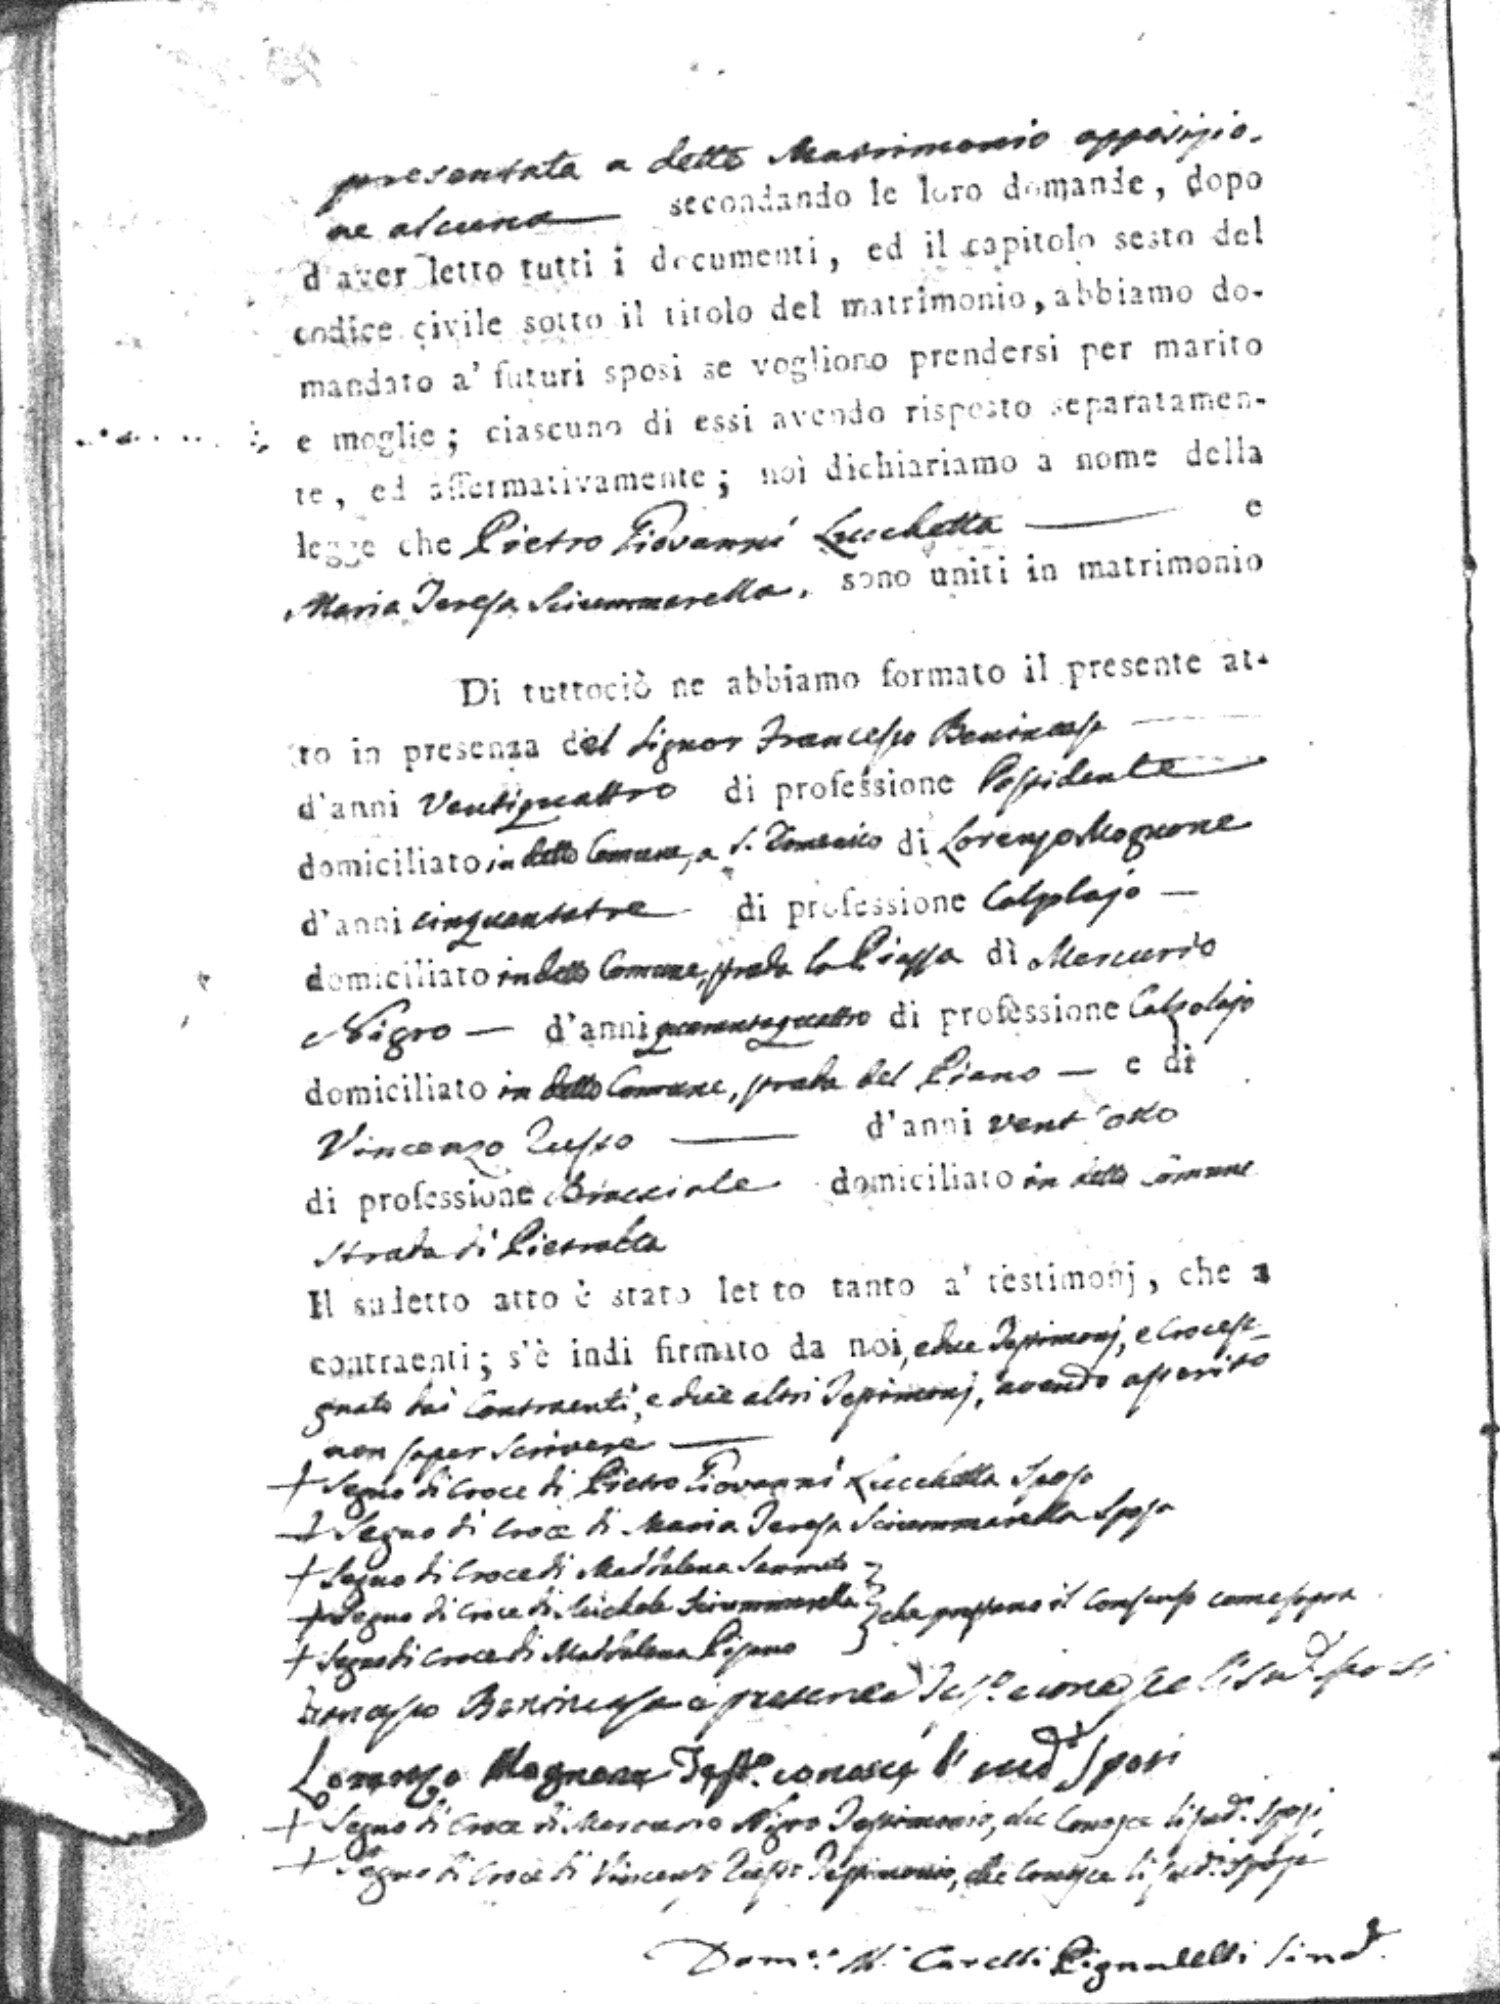 presentata a detto Matrimonio opposizio-
ne alcuna secondando le loro domande, dopo
d'aver letto tutti i documenti, ed il capitolo sesto del
codice civile sotto il titolo del matrimonio, abbiamo do-
mandato a' futuri sposi se vogliono prendersi per marito
e moglie; ciascuno di essi avendo risposto separatamen-
te, ed affermativamente; noi dichiariamo a nome della
legge che Pietro Giovanni Lucchetta e
Maria Teresa Sciummarella, sono uniti in matrimonio
Di tuttociò ne abbiamo formato il presente at-
to in presenza del Signor Francesco Benincasa
d'anni Ventiquattro di professione Possidente
domiciliato in detto Comune, a S. Domenico di Lorenzo Mognone
d'anni cinquantatre di professione Calzolajo
domiciliato in detto Comune, strada la Piazza di Mercurio
Nigro d'anni quarantaquattro di professione Calzolajo
domiciliato in detto Comune, strada del Piano e di
Vincenzo Russo d'anni vent'otto
di professione Bracciale domiciliato in detto Comune
strada di Pietrabba
Il sudetto atto è stato letto tanto a' testimonj, che a
contraenti; s'è indi firmato da noi, e due Testimonj, e Crocese-
gnato dai Contraenti, e due altri Testimonj, avendo asserito
non saper scrivere
+ Segno di Croce di Pietro Giovanni Lucchetta Sposo
+ Segno di Croce di Maria Teresa Sciummarella Sposa
+ Segno di Croce di Maddalena Sammito
+ Segno di Croce di Michele Sciummarella che prestano il Consenso come sopra
+ Segno di Croce di Maddalena Pisano
Francesco Benincasa è presente Test.o e conosce li sud.i sposi
Lorenzo Mognone Test.o conosce li sud.i Sposi
+ Segno di Croce di Mercurio Nigro Testimonio, che Conosce li sud.i Sposi
+ Segno di Croce di Vincenzo Russo Testimonio, che Conosce li sud.i Sposi
Dom.co M.a Carelli Pignatelli Sind.o